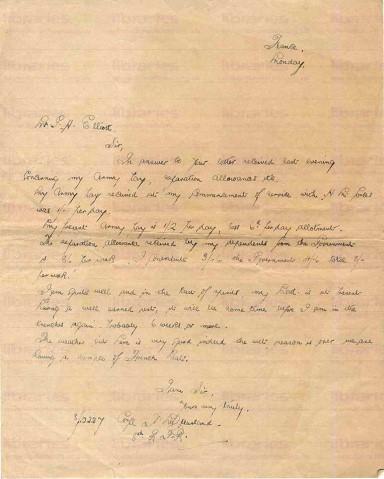 France.
Monday.
Mr. F. A. Elliott,
Sir,
In answer to your letter received last evening
concerning my Army Pay, separation allowances etc.
My Army Pay received at my commencement of service with H M Forces
was 1/- per day.
My present Army Pay is 1/2 per day, less 6d per day allotment.
The separation allowance received by my dependents from the Government
is per week. I contribute 3/6 the Government
per week.
I am quite well and in the best of spirits, my Batt. is at present
having a well earned rest, it will be some time before I am in the
trenches again. Probably 6 weeks or more.
The weather out here is very good indeed the wet season is over we are
having a number of French
I am Sir,
Yours very truly,
Corpl